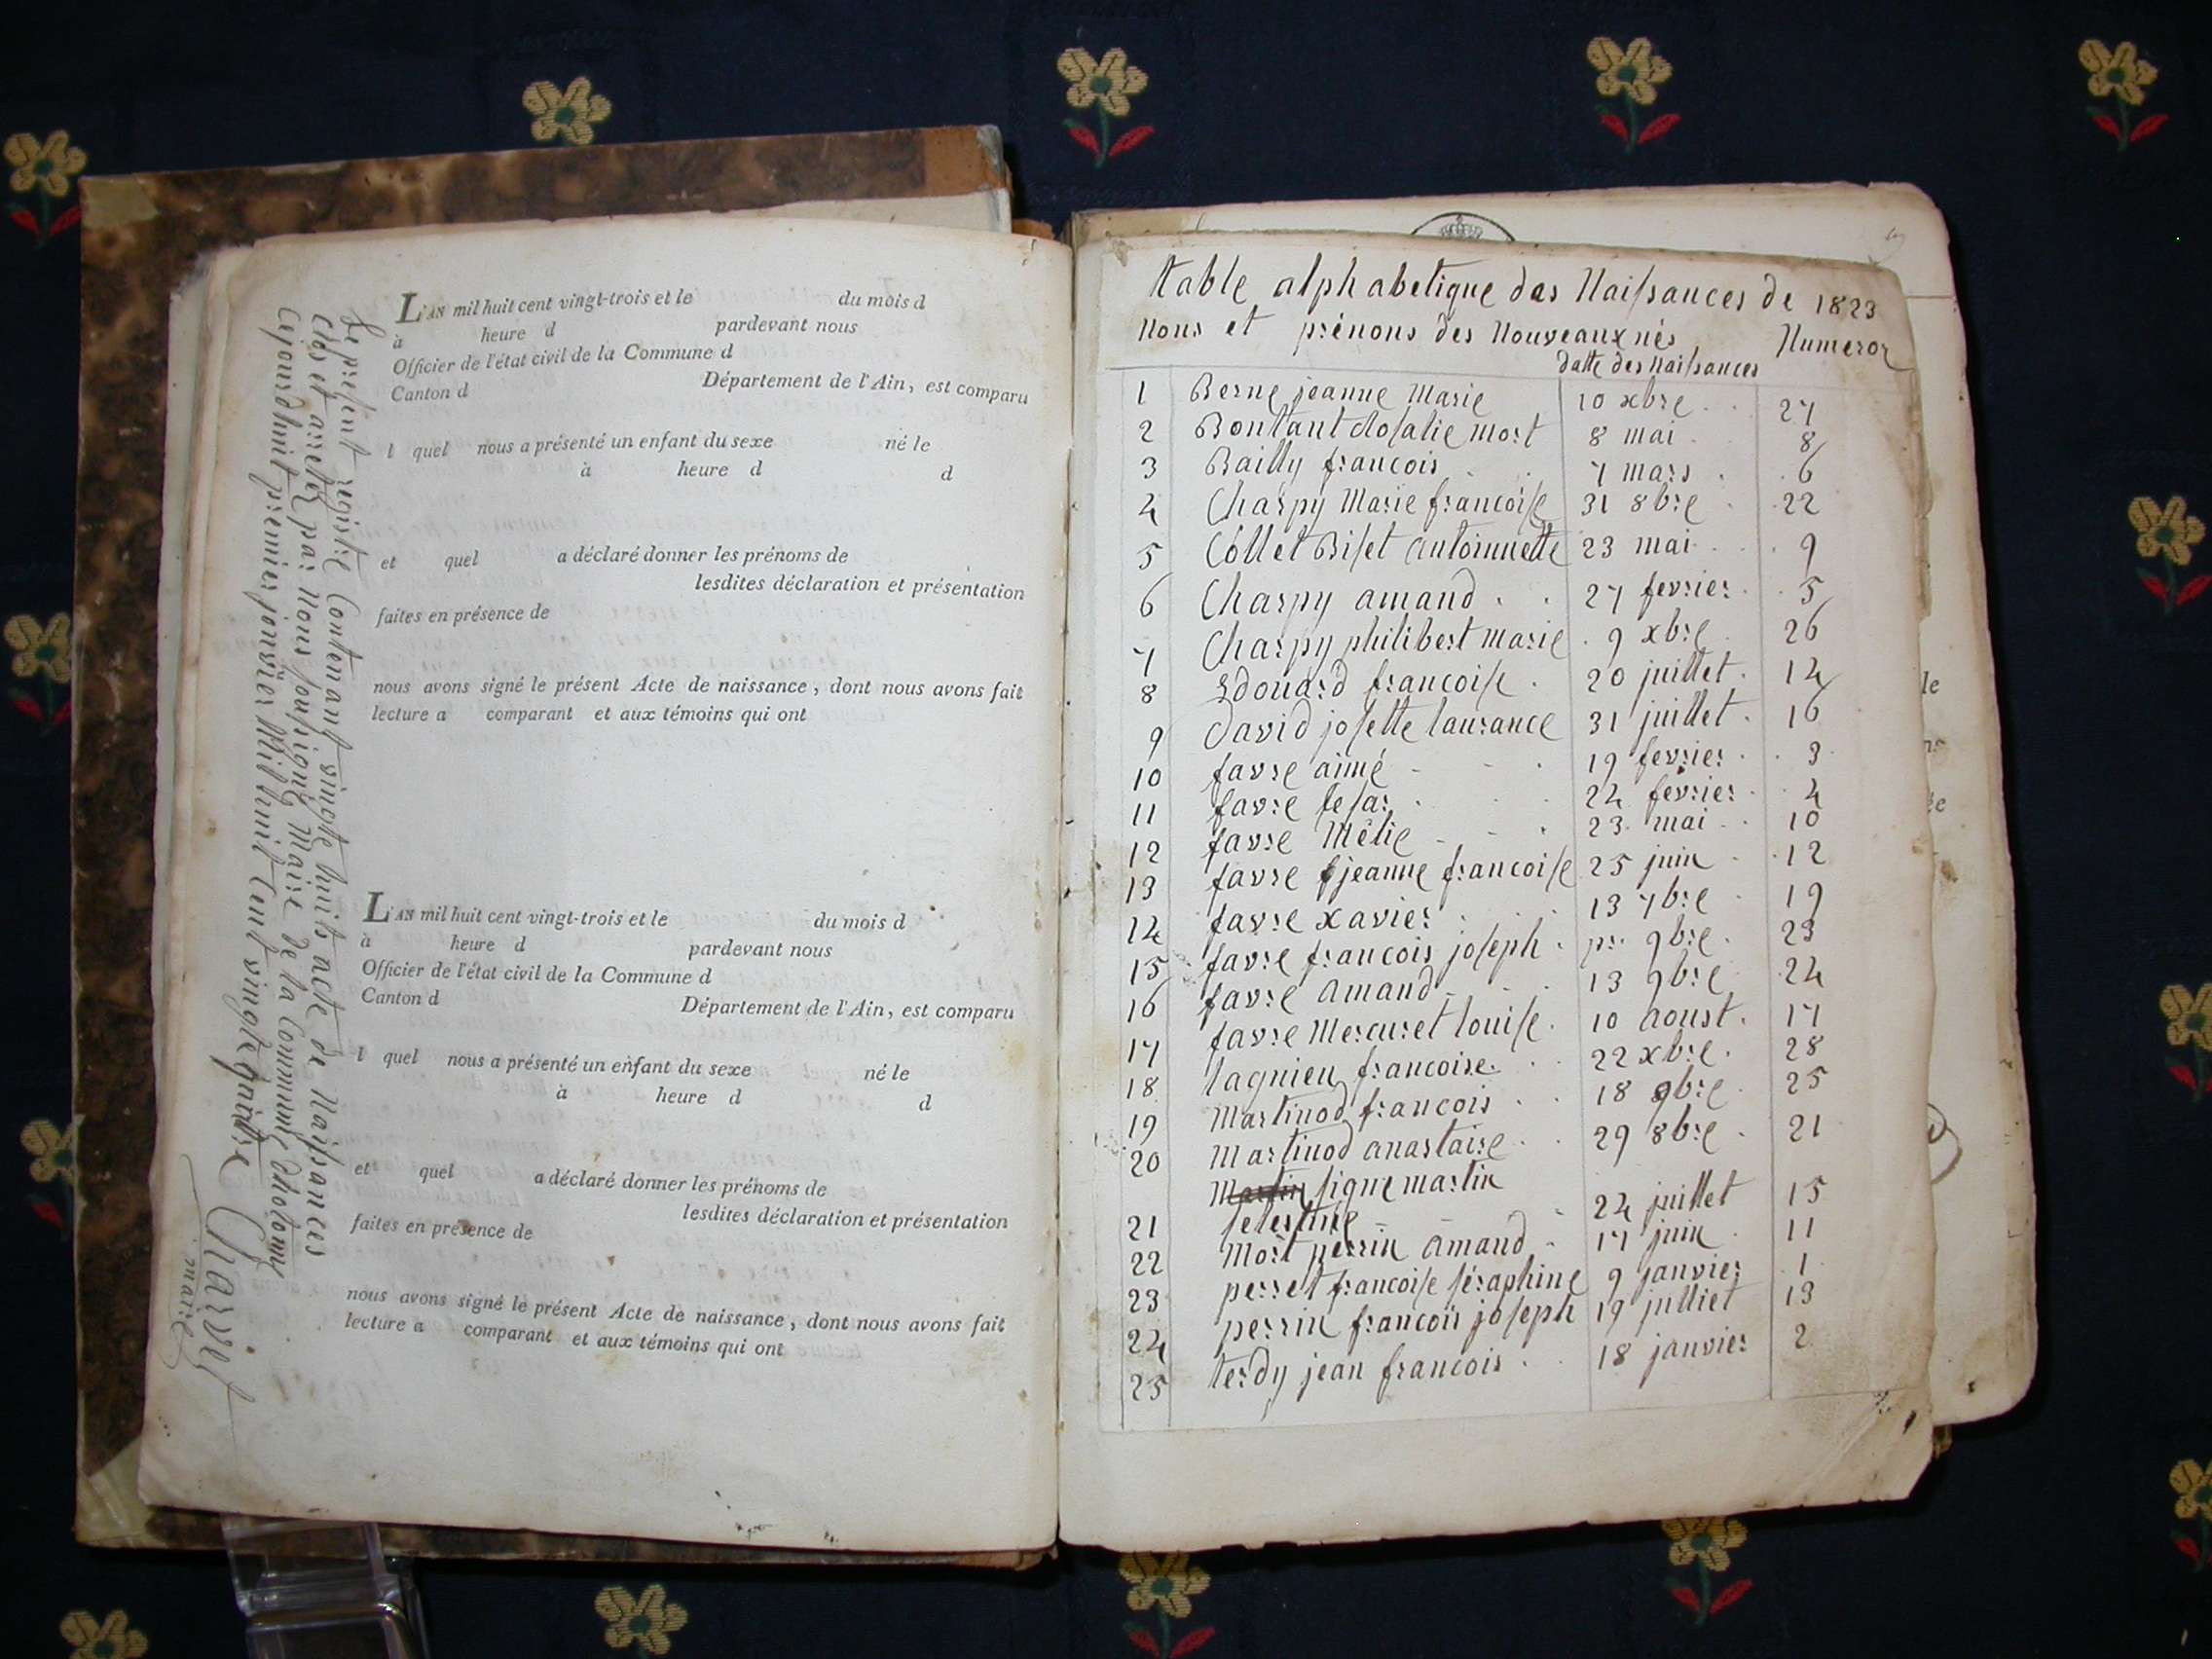 L'AN mil huit cent vingt-trois et le du mois d
à heure d pardevant nous
Officier de l'état civil de la Commune d
Canton d Département de l'Ain, est comparu
l quel nous a présenté un enfant du sexe né le
à heure d d
et quel a déclaré donner les prénoms de
lesdites déclaration et présentation
faites en présence de
nous avons signé le présent Acte de naissance, dont nous avons fait
lecture a comparant et aux témoins qui ont
L'AN mil huit cent vingt-trois et le du mois d
à heure d pardevant nous
Officier de l'état civil de la Commune d
Canton d Département de l'Ain, est comparu
l quel nous a présenté un enfant du sexe né le
à heure d d
et quel a déclaré donner les prénoms de
lesdites déclaration et présentation
faites en présence de
nous avons signé le présent Acte de naissance, dont nous avons fait
lecture a comparant et aux témoins qui ont
Le present registre Contenant vingte huits acte de Naissances
Clos et areter par Nous sousigné Maire de la Commune
Cejourdhuit premier jenvier Mil huit Cent vingte quattre
Charvet
maire
table alphabetique des Naissances de 1823
Nons et prénons des Nouveaux nés Numeror
datte des Naissances
1 Berne jeanne Marie 10 xbre 27
2 Bontant Rosalie mort 8 mai 8
3 Bailly francois 7 mars 6
4 Charpy Marie francoise 31 8bre 22
5 Collet Biset antoinnette 23 mai 9
6 Charpy amand 27 fevrier 5
7 Charpy philibert marie 9 xbre 26
8 Edouard francoise 20 juillet 14
9 david josette laurance 31 juillet 16
10 favre aimé 19 fevrier 3
11 favre sesar 24 fevrier 4
12 favre Mélie 23 mai 10
13 favre jeanne francoise 25 juin 12
14 favre xavier 13 7bre 19
15 favre francois joseph pr. 9bre 23
16 favre amand 13 9bre 24
17 favre Mercuret louise 10 aoust 17
18 lagnieu francoise 22 xbre 28
19 Martinod francois 18 9bre 25
20 Martinod anastaise 29 8bre 21
Martin signe martin
21 selestine 24 juillet 15
22 Mort perrin amand 17 juin 11
23 perret francoise séraphine 9 janvier 1
24 perrin francois joseph 19 julliet 13
25 terdy jean francois 18 janvier 2